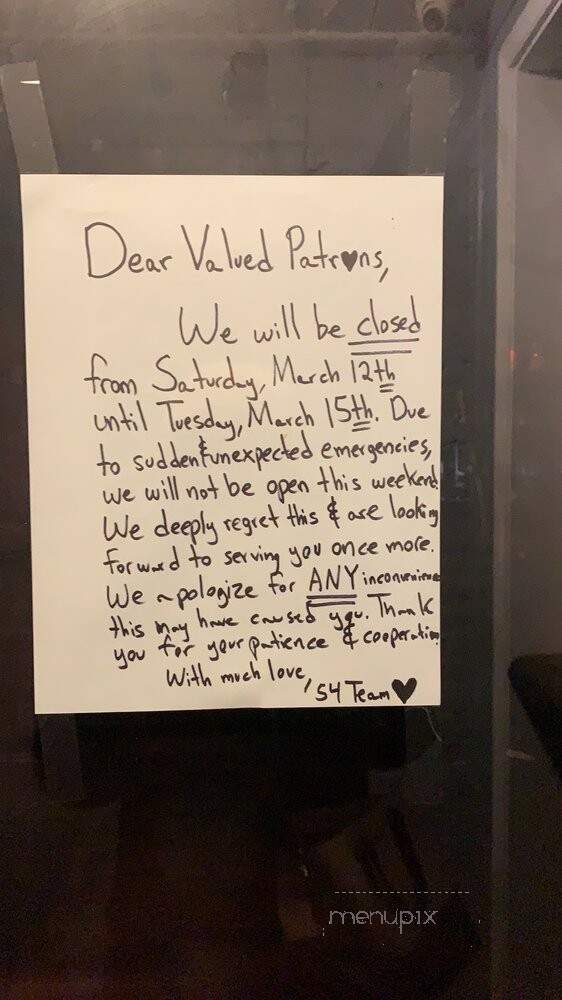 Dear Valued Patr♥ns,
We will be closed
from Saturday, March 12th
until Tuesday, March 15th. Due
to sudden & unexpected emergencies,
we will not be open this weekend.
We deeply regret this & are looking
forward to serving you once more.
We apologize for ANY inconvenience
this may have caused you. Thank
you for your patience & cooperation
With much love,
54 Team ♥
menupix